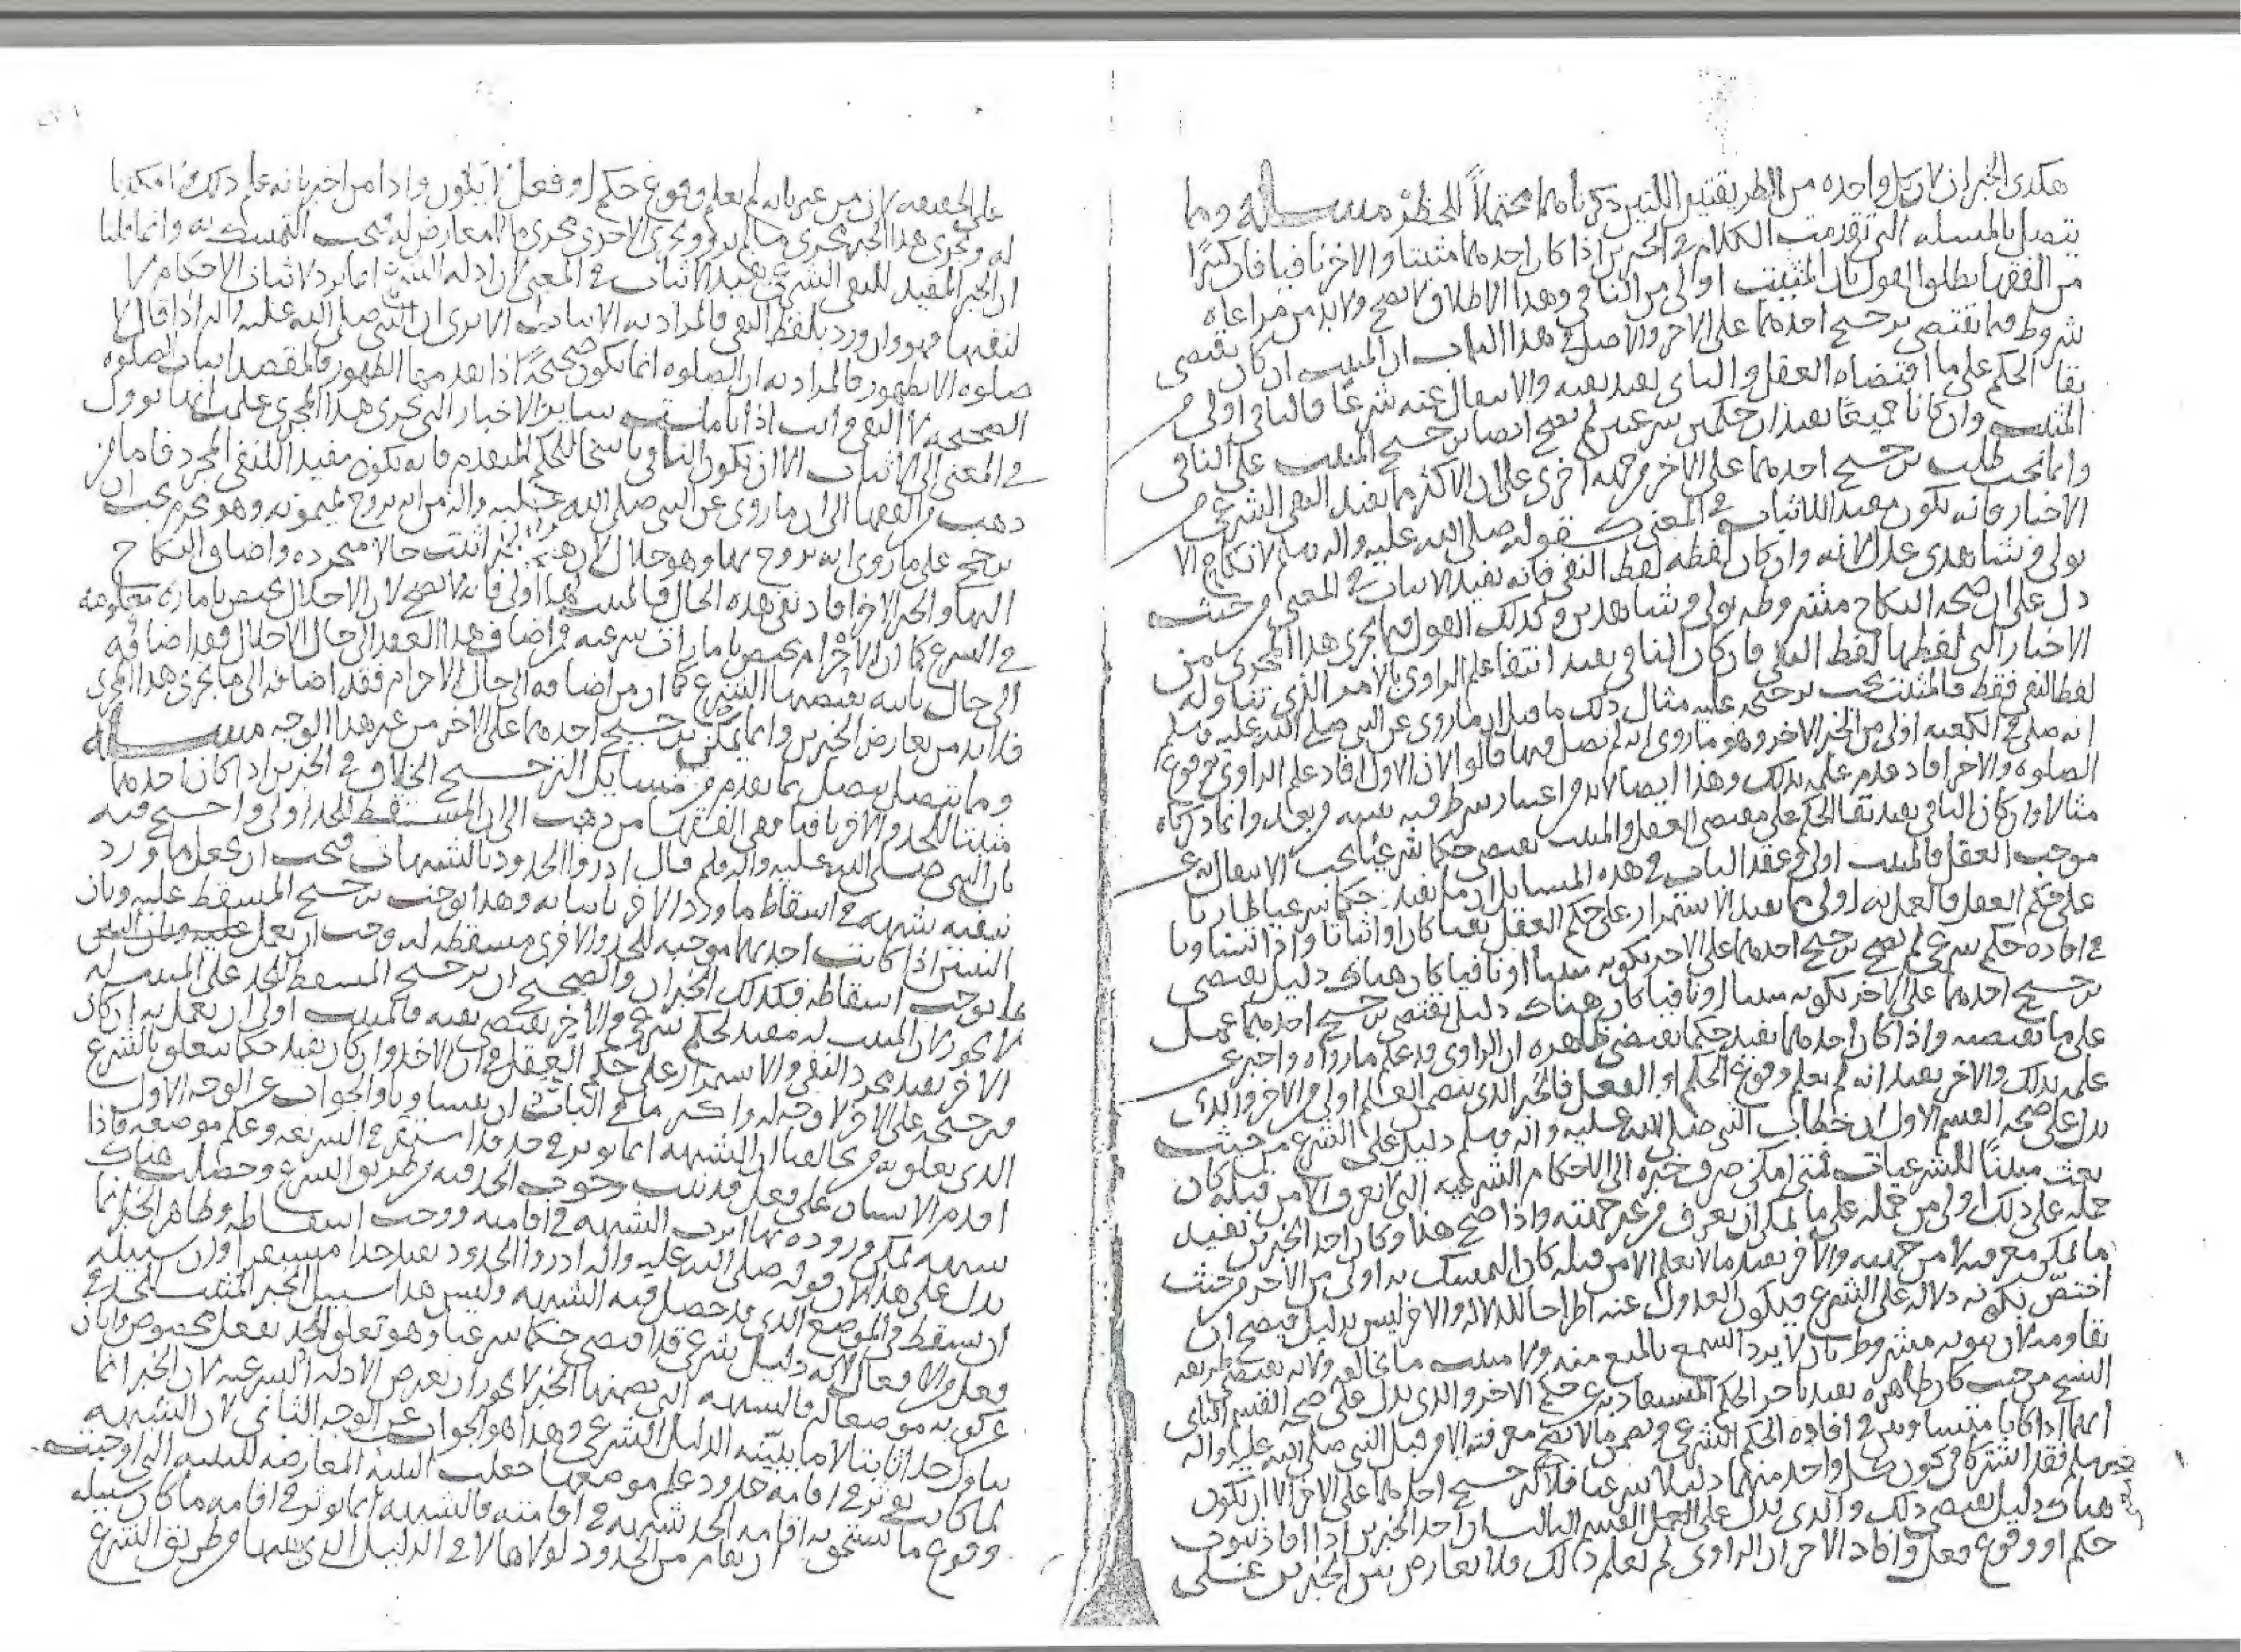 هكذى الخبران لان كل واحده من الطريقتين اللتين ذكرناهما محتملاً للحظر مسـاله ومما
يتصل بالمسله التى تقدمت الكلام فى الخبرين اذا كان احدهما مثبتا والاخر نافيا فان كثيرًا
من الفقها يطلق القول بان المثبت اولى من النافى وهذا الاطلاق لا يصح ولا بد من مراعاه
شروط فيما يقتضى ترجيح احدهما على الاخر والاصل فى هذا الباب ان المثبت ان كان يقتضى
بقا الحكم على ما اقتضاه العقل والنافى يفيد نفيه والانتقال عنه شرعًا فالنافى اولى من
المثبت وان كانا جميعًا يفيدان حكمين شرعيين لم يصح ايضا ترجيح المثبت على النافى
وانما يجب طلب ترجيح احدهما على الاخر من جهه اخرى على ان الاكثر مما يفيد النفى الشرعى من
الاخبار فانه يكون مفيدا للاثبات فى المعنى كقوله صلى الله عليه واله وسلم لا نكاح الا
بولى وشاهدى عدل لانه وان كان لفظه لفظ النفى فانه يفيد الاثبات فى المعنى من حيث
دل على ان صحه النكاح مشروطه بولى وشاهدين وكذلك القول فيما يجرى هذا المجرى من
الاخبار التى لفظها لفظ النفى فان كان النافى يفيد انتفا علم الراوى بالامر الذى تناوله
لفظ النفى فقط فالمثبت يجب ترجيحه عليه مثال ذلك ما قيل ان ما روى عن النبى صلى الله عليه وسلم
انه صلى فى الكعبه اولى من الخبر الاخر وهو ما روى انه لم يصل فيها قالوا لان الاول افاد علم الراوى بوقوع
الصلوه والاخر افاد عدم علمه بذلك وهذا ايضا لا بد من اعتبار شرط فيه
مثالا وان كان النافى يفيد بقا الحكم على مقتضى العقل والمثبت يقتضى حكما شرعيًا يجب الانتقال عن
موجب العقل فالمثبت اولى وعقد الباب فى هذه المسايل ان ما يفيد حكما شرعيا طاريا
على حكم العقل فالعمل به اولى مما يفيد الاستمرار على حكم العقل نفيا كان او اثباتا واذا تساويا
فى افاده حكم شرعى لم يصح ترجيح احدهما على الاخر بكونه مثبتا او نافيا فان كان هناك دليل يقتضى
ترجيح احدهما على الاخر بكونه مثبتا او نافيا كان هناك دليل يقتضى ترجيح احدهما عمل
على ما يقتضيه واذا كان احدهما يفيد حكما يقتضى ظاهره ان الراوى قد علم ما رواه واخبر عن
علمه بذلك والاخر يفيد انه لم يعلم وقوع الحكم او الفعل فالخبر الذى يتضمن العلم اولى من الاخر والذى
يدل على صحه القسم الاول ان خطاب النبى صلى الله عليه واله وسلم دليل على الشرع من حيث
بعث مبينًا للشرعيات فمتى امكن صرف خبره الى الاحكام الشرعيه التى لا تعرف الا من قبله كان
حمله على ذلك اولى من حمله على ما يمكن ان يعرف من غير جهته واذا صح هذا وكان احد الخبرين يفيد
ما يمكن معرفته لا من جهته والاخر يفيد ما لا يعلم الا من قبله كان التمسك به اولى من الاخر من حيث
اختصّ بكونه دلاله على الشرع فيكون العدول عنه اطراحا للدلاله والاخر ليس بدليل فيصح ان
يقاومه لان ثبوته مشروط بان لا يرد السمع بالمنع منه ولا يثبت ما يخالفه ولانه يقتضى طريقه
النسخ من حيث كان ظاهره يفيد تاخر الحكم المستفاد به عن حكم الاخر والذى يدل على صحه القسم الثانى
انهما اذا كانا متساويين فى افاده الحكم الشرعى وتضمن ما لا يصح معرفته الا من قبل النبى صلى الله عليه واله
وسلم فقد اشتركا فى كون كل واحد منهما دليلا شرعيا فلا ترجيح احدهما على الاخر الا ان يكون
هناك دليل يقتضى ذلك والذى يدل على القسم الثالث ان احد الخبرين اذا افاد ثبوت
حكم او وقوع فعل وافاد الاخر ان الراوى لم يعلم ذلك فلا تعارض بين الخبرين على
على الحقيقه لان من خبر بانه لم يعلم وقوع حكم او فعل لا يكون وادا من اخبر بانه علم ذلك ولا مكذبا
له ويجرى هذا الخبر مجرى ما لم يرد ويجرى الاخرى مجرى ما لا معارض له فيجب التمسك به وانما قلنا
ان الخبر المفيد للنفى الشرعى يفيد الاثبات فى المعنى لان ادله الشرع انما ترد لاثبات الاحكام لا
لنفيها فهو وان ورد بلفظ النفى فالمراد به الاثبات الا ترى ان النبى صلى الله عليه واله اذا قال لا
صلوه الا بطهور فالمراد به ان الصلوه انما يكون صحيحًا اذا تقدمها الطهور فالمقصد اثبات الصلوه
الصحيحه لا النفى وانت اذا تاملت ساير الاخبار التى تجرى هذا المجرى علمت انها تؤول
فى المعنى الى الاثبات الا ان يكون النافى ناسخا للحكم المتقدم فانه يكون مفيدا للنفى المجرد فاما من
ذهب من الفقها الى ان ما روى عن النبى صلى الله عليه واله من انه تزوج ميمونه وهو محرم يجب ان
يرجح على ما روى انه تزوج بها وهو حلال لان هذا الخبر اثبت حالا متجدده واضاف النكاح
اليها والخبر الاخر افاد نفى هذه الحال فالمثبت لهذا اولى فانه لا يصح لان الاحلال يختص بامارات معلومه
فى الشرع كما ان الاحرام يختص بامارات شرعيه فمن اضاف هذا العقد الى حال الاحلال فقد اضافه
الى حال ثابته يقتضيها الشرع كما ان من اضافه الى حال الاحرام فقد اضافه الى ما يجرى هذا المجرى
فلا بد من تعارض الخبرين وانما يمكن ترجيح احدهما على الاخر من غير هذا الوجه مسـاله
ومما يتصل بما تقدم من مسايل الترجيح الخلاف فى الخبرين اذا كان احدهما
مثبتا للحد والاخر نافيا ففى الفقها من ذهب الى ان المسقط للحد اولى واحتج فيه
بان النبى صلى الله عليه واله وسلم قال ادروا الحدود بالشبهات فيجب ان يجعل ما ورد
بنفيه شبهه فى اسقاط ما ورد الاخر باثباته وهذا يوجب ترجيح المسقط عليه وبان
البينتين اذا كانت احدهما موجبه للحد والاخرى مسقطه له وجب ان يعمل
بما يوجب اسقاطه فكذلك الخبران والصحيح ان ترجيح المسقط للحد على المثبت له
لا يجوز لان المثبت له مفيد لحكم شرعى والاخر يقتضى نفيه فالمثبت اولى ان يعمل به ان كان
الاخر يفيد مجرد النفى والاستمرار على حكم العقل وان الاخر وان كان يفيد حكما يتعلق بالشرع
فترجيحه على الاخر لا وجه له واكثر ما فى الباب ان يتساويا والجواب عن الوجه الاول
الذى تعلق به من خالفنا ان الشبهه انما تؤثر فى حد قد استقر فى الشريعه وعلم موضعه فاذا
اقدم الانسان على فعل قد ثبت وجوب الحد فيه من طريق الشرع وحصلت هناك
شبهه يمكن وروده بها اثرت الشبهه فى اقامته ووجب اسقاطه وظاهر الخبر انما
يدل على هذا لان قوله صلى الله عليه واله ادروا الحدود يفيد حدا مستقرا وان سبيله
ان يسقط فى الموضع الذى قد حصل فيه الشبهه وليس هذا سبيل الخبر المثبت للحد فى
فعل من الافعال لانه دليل شرعى قد اقتضى حكما شرعيا وهو تعلق الحد بفعل مخصوص وابان
عن كونه موضعا له فالشبهه التى تضمنها الخبر لا يجوز ان تعترض الادله الشرعيه لان الخبر انما
تناول حدا ثابتا لا ما يثبته الدليل الشرعى وهذا هو الجواب عن الوجه الثانى لان الشبهه
لما كانت تؤثر فى اقامه حد ود علم موضعها جعلت البينه المعارضه للبينه التى اوجبت
وقوع ما يستحق به اقامه الحد شبهه فى اقامته فالشبهه انما تؤثر فى اقامه ما كان سبيله
ان يقام من الحدود لولاها لا فى الدليل الذى يثبتها من طريق الشرع